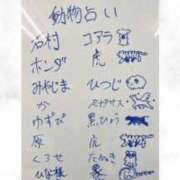 動物占い
石村 コアラ
ホンダ 虎
みやじま ひつじ
か ペガサス
ゆずぴ 黒ひょう
原 虎
くろせ たぬき
ひな様 象